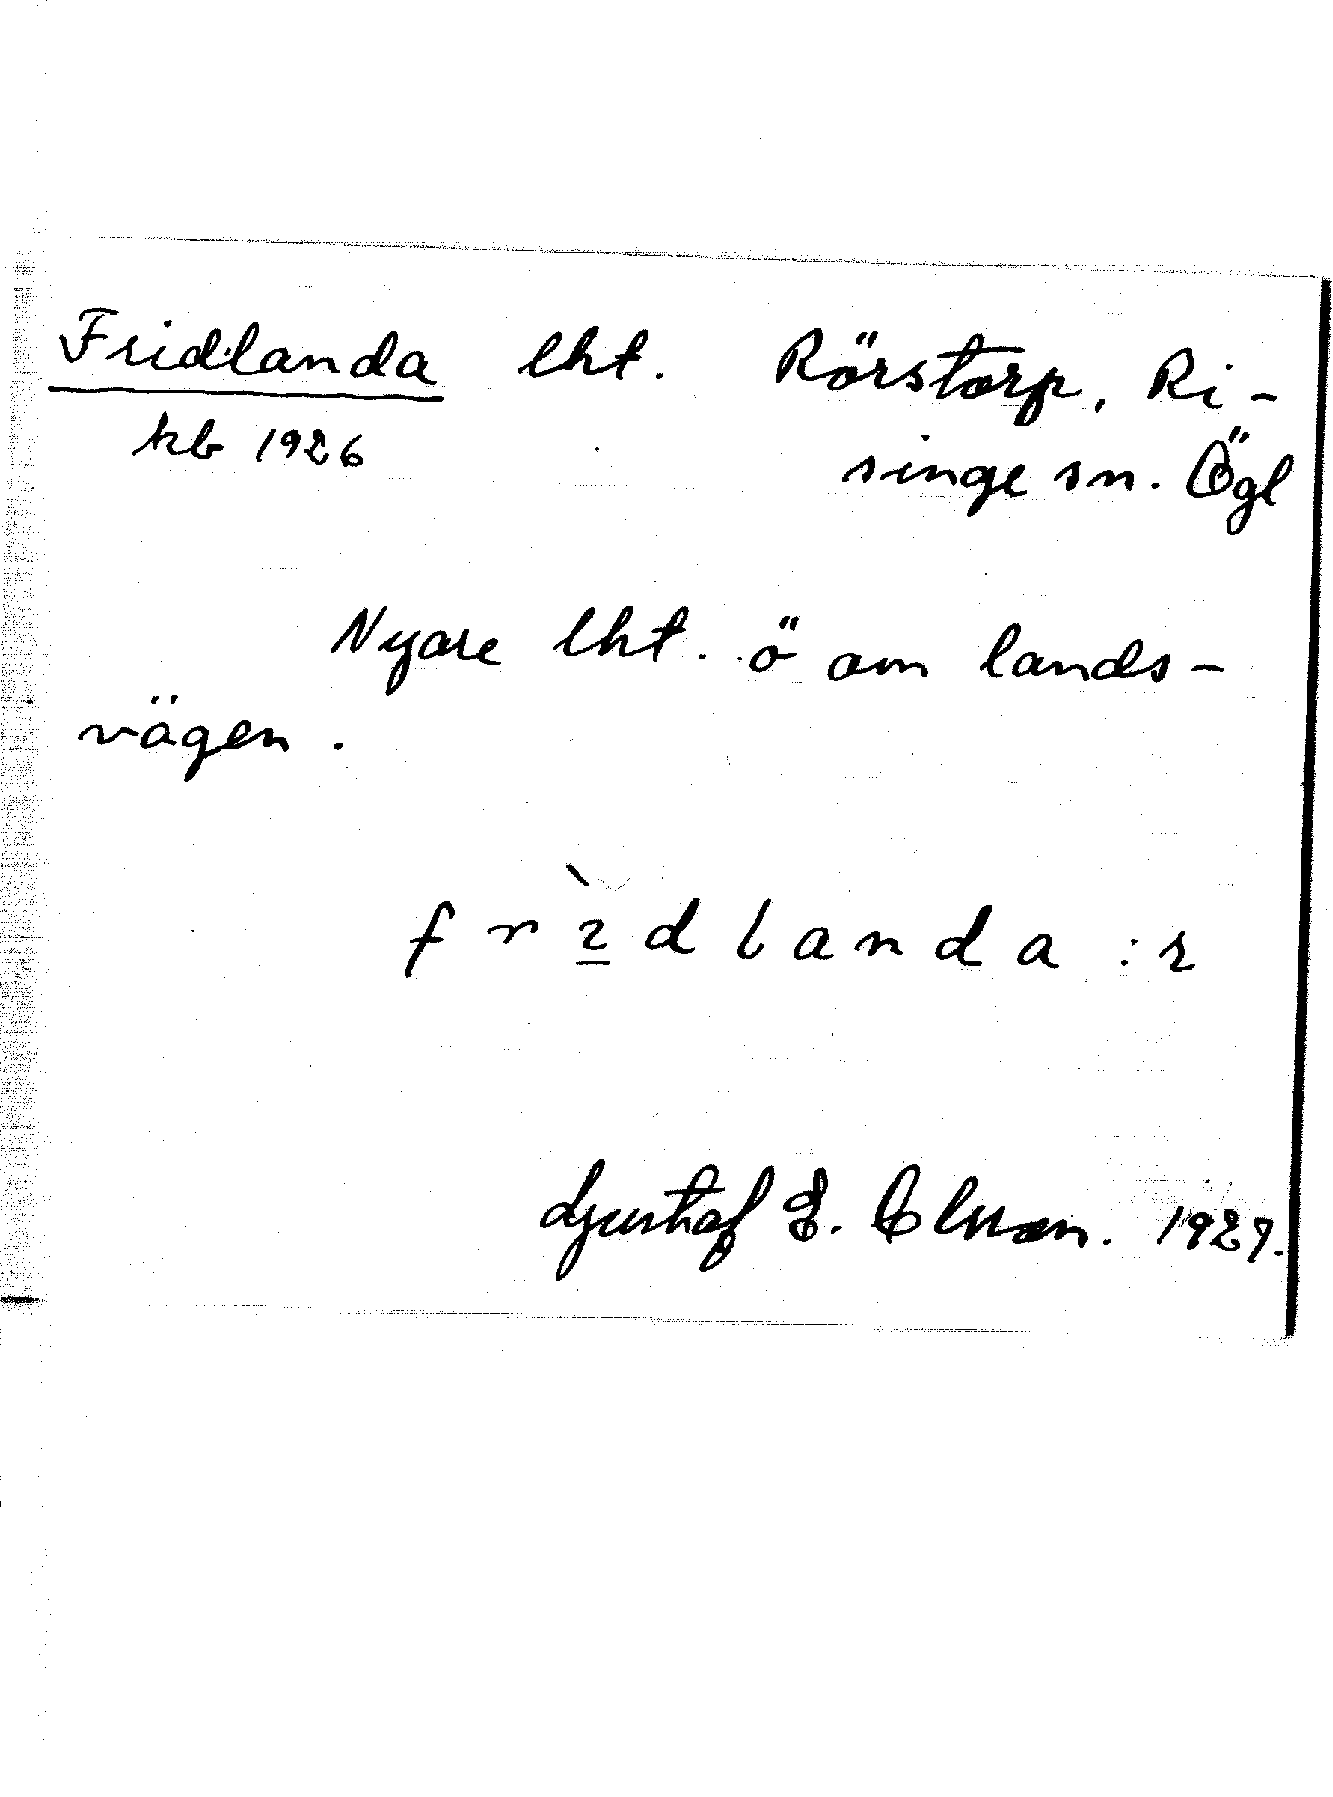 Fridlanda lht. Rörstorp, Ri-
kb 1926 singe sn. Ögl
Nyare lht. ö om lands-
vägen.
f r ì d l a n d a : ɩ
Gustaf E. Clason. 1927.